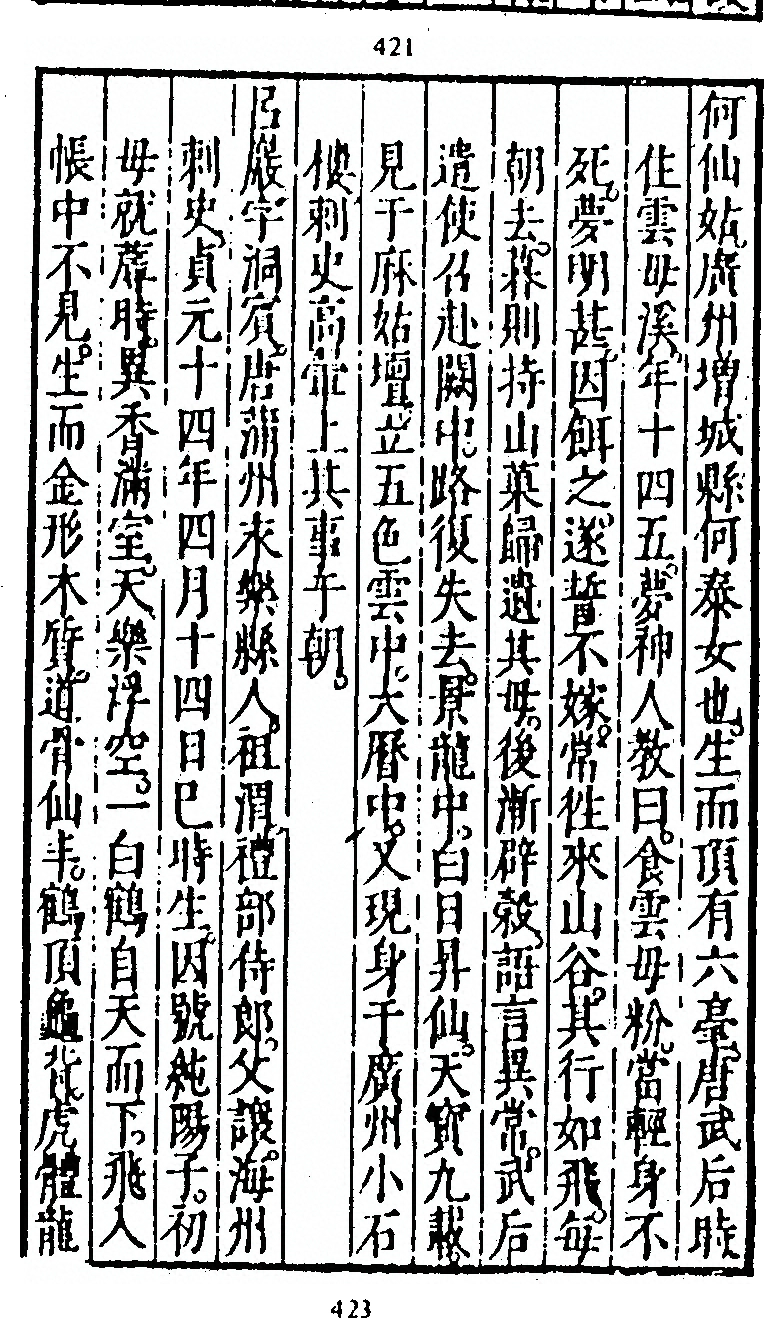 421
何仙姑。廣州增城縣何泰女也。生而頂有六毫。唐武后時
住雲母溪。年十四五。夢神人教曰。食雲母粉。當輕身不
死。夢明甚。因餌之。遂誓不嫁。常往來山谷。其行如飛。每
朝去。暮則持山菓歸遺其母。後漸辟穀。語言異常。武后
遣使召赴闕。中路復失去。景龍中。白日昇仙。天寶九載。
見于麻姑壇。立五色雲中。大曆中。又現身于廣州小石
樓。刺史高皇上其事于朝。
呂巖字洞賓。唐蒲州永樂縣人。祖渭。禮部侍郎。父讓。海州
刺史。貞元十四年四月十四日巳時生。因號純陽子。初
母就蓐時。異香滿室。天樂浮空。一白鶴自天而下。飛入
帳中不見。生而金形木質。道骨仙丰。鶴頂龜背。虎體龍
423